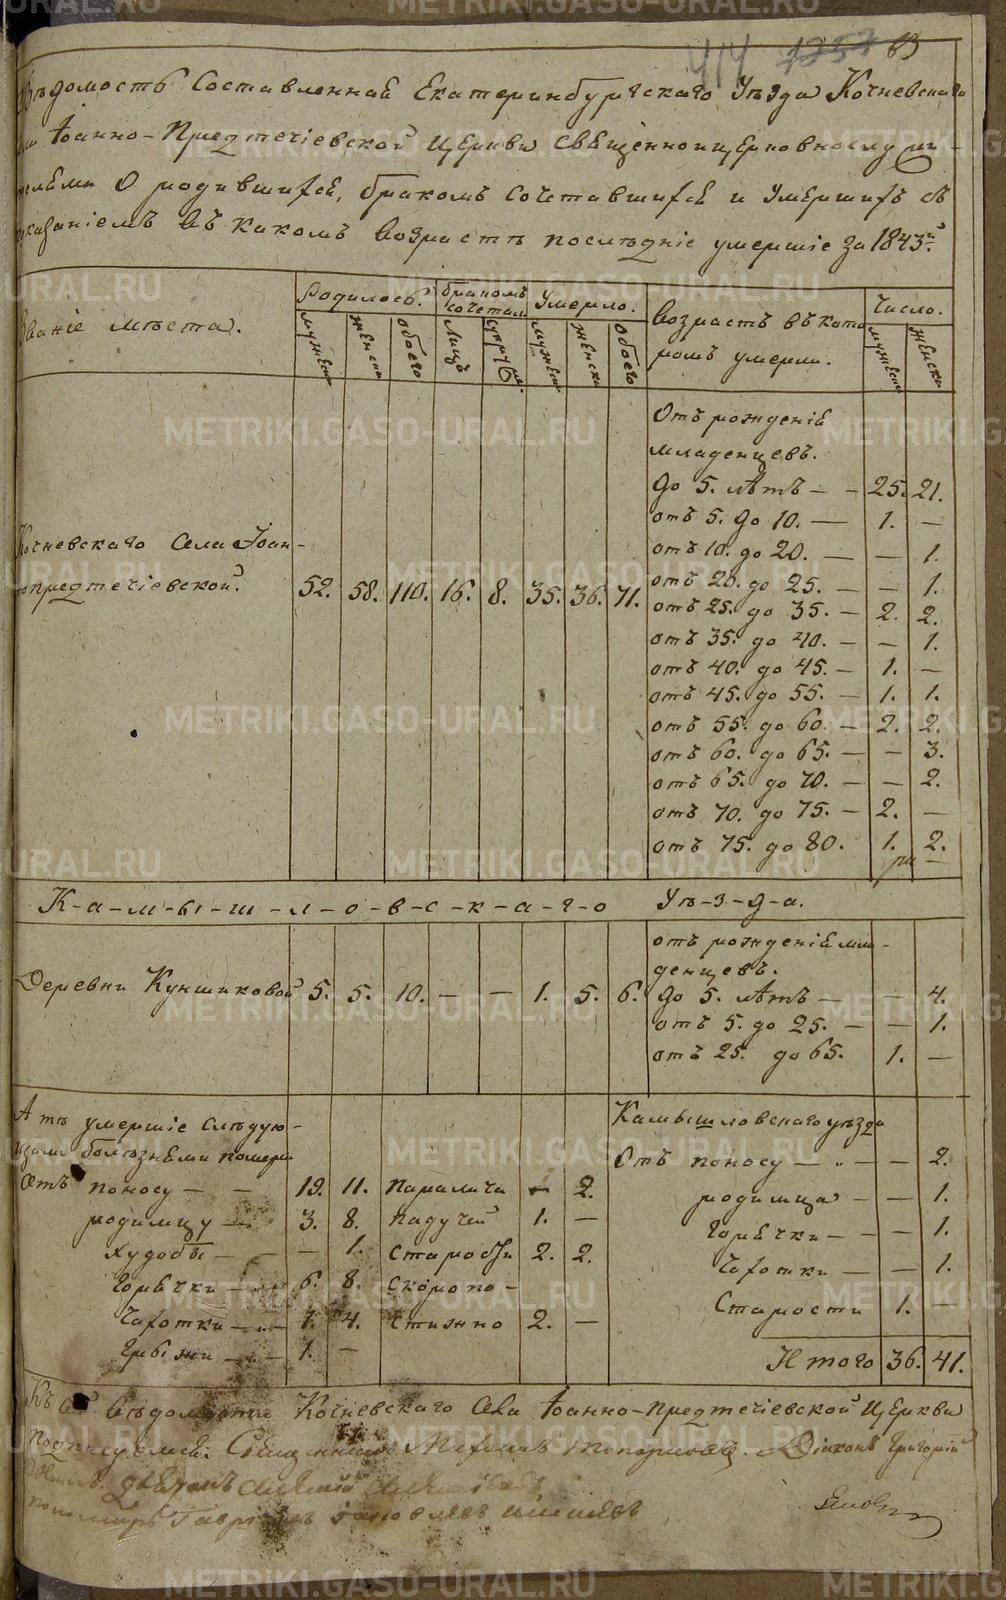 414 1257 63
Вѣдомость Составленная Екатеринбургскаго Уѣзда Кочневскаго
Іоанно-Предтечіевской Церкви священноицерковнослужи-
телями О родившихся, бракомъ сочетавшихся и Умершихъ съ
показаніемъ въ какомъ возрастѣ послѣдніе умершіе за 1843й.
Званіе мѣста.
Родилось. бракомъ сочетал Умерло. Возрастъ въ кото-
ромъ умерли. Число.
мужеск женски обоего Лицъ супруж. мужеск женски обоего мужеск женски
Отъ рожденія
младенцевъ.
до 5. лѣтъ — — 25. 21.
отъ 5. до 10. — 1. —
отъ 10. до 20. — — 1.
Кочневскаго Села Іоан-
нопредтечіевской. 52. 58. 110. 16. 8. 35. 36. 71.
отъ 20. до 25. — — 1.
отъ 25. до 35. — 2. 2.
отъ 35. до 40. — — 1.
отъ 40. до 45. — 1. —
отъ 45. до 55. — 1. 1.
отъ 55. до 60. — 2. 2.
отъ 60. до 65. — — 3.
отъ 65. до 70. — — 2.
отъ 70. до 75. — 2. —
отъ 75. до 80. 1. 2.
К-а-м-ы-ш-л-о-в-с-к-а-г-о Уѣ-з-д-а.
отъ рожденія мла-
денцевъ.
Деревни Куншиковой 5. 5. 10. — — 1. 5. 6. до 5. лѣтъ — — 4.
отъ 5. до 25. — — 1.
отъ 25. до 65. 1. —
А тѣ умершіе слѣдую-
щими болѣзнями померли
Отъ поносу — — 19. 11. Паралича — 2.
родимцу — 3. 8. Падучей 1. —
Худобы — — 1. Старости 2. 2.
Горячки — 6. 8. Скоропо-
Чахотки — 1. 4. стижно 2. —
Грыжи — 1. —
Камышловскаго уѣзда
Отъ поносу — „ — — 2.
родимца — — 1.
Горячки — — 1.
Чахотки — — 1.
Старости 1. —
Итого 36. 41.
Къ сей вѣдомости Кочневскаго Села Іоанно-Предтечіевской Церкви
Подписуемся: Священникъ Топорковъ. Діаконъ Григорій
дьячекъ Алексѣй
пономарь Гавріилъ
METRIKI.GASO-URAL.RU